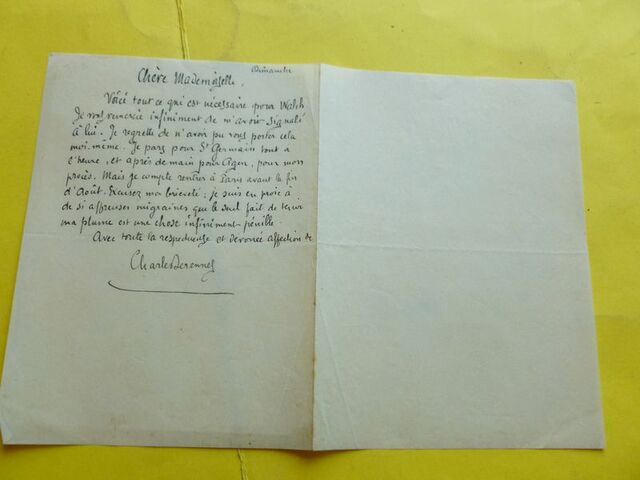 Dimanche
Chère Mademoiselle,
Voici tout ce qui est nécessaire pour Walch
Je vous remercie infiniment de m'avoir signalé
à lui. Je regrette de n'avoir pu vous porter cela
moi-même. Je pars pour St Germain tout à
l'heure, et après demain pour Agen, pour mon
procès. Mais je compte rentrer à Paris avant la fin
d'Août. Excusez ma brièveté ; je suis en proie à
de si affreuses migraines que le seul fait de tenir
ma plume est une chose infiniment pénible.
Avec toute la respectueuse et dévouée affection de
Charles Derennes